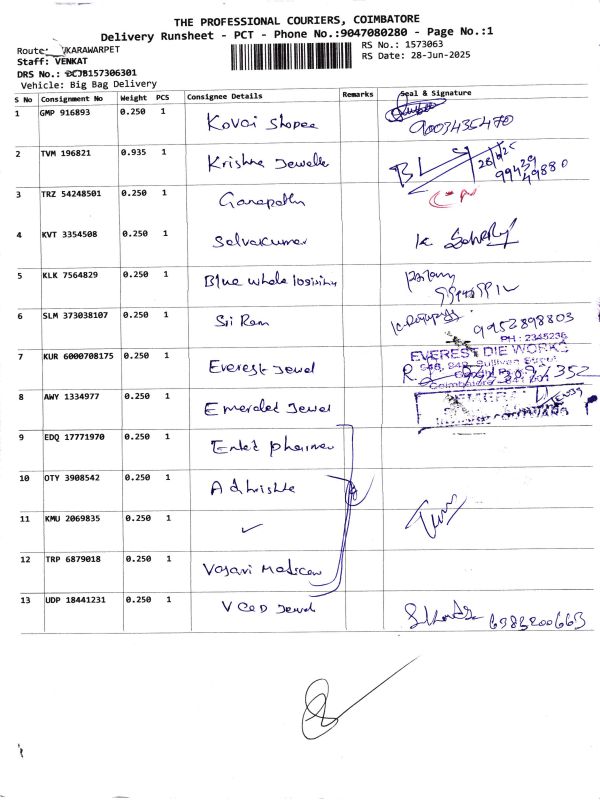 THE PROFESSIONAL COURIERS, COIMBATORE
Delivery Runsheet - PCT - Phone No.:9047080280 - Page No.:1
Route: KARAWARPET
RS No.: 1573063
Staff: VENKAT
RS Date: 28-Jun-2025
DRS No.: DCJB157306301
Vehicle: Big Bag Delivery
S No Consignment No Weight PCS Consignee Details Remarks Seal & Signature
1 GMP 916893 0.250 1 Kovai Shopee 9003435470
2 TVM 196821 0.935 1 Krishna Jewells 28/6/25 99439 49880
3 TRZ 54248501 0.250 1 Ganapathy
4 KVT 3354508 0.250 1 Selvakumar K.
5 KLK 7564829 0.250 1 Blue whale
6 SLM 373038107 0.250 1 Sri Ram 9952898803
PH : 2345236
7 KUR 6000708175 0.250 1 Everest Jewel EVEREST DIE WORKS
Coimbatore - 641 001
8 AWY 1334977 0.250 1 Emerald Jewel
9 EDQ 17771970 0.250 1
10 OTY 3908542 0.250 1 Adhrishta
11 KMU 2069835 0.250 1 ✓
12 TRP 6879018 0.250 1 Vasavi
13 UDP 18441231 0.250 1 Jewel 6383200663